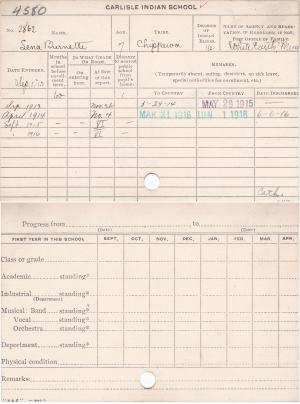 4580
CARLISLE INDIAN SCHOOL
No. 2862
AGE. TRIBE. DEGREE OF INDIAN BLOOD. NAME OF AGENCY AND RESERVATION, IF ENROLLED; IF NOT, POST OFFICE OF FAMILY.
Chippewa White Earth Minn
DATE ENTERED. MONTHS IN SCHOOL BEFORE ENROLLMENT HERE. IN WHAT GRADE OR ROOM. DISTANCE TO NEAREST PUBLIC SCHOOL FROM PUPIL'S HOME. REMARKS.
ON ENTERING HERE. AT DATE OF THIS REPORT.
(Temporarily absent, outing, deserters, on sick leave, special authorities for enrollment, etc.)
TO COUNTRY FROM COUNTRY DATE DISCHARGED
60 1
Sep. 1913 5-24-14 MAY 29 1915
April 1914 No. 4 MAR 31 1916 JUN 1 1916 6-6-16
Sept. 1915 VI
1916 VI
Cath.
Progress from to
(Date) (Date)
FIRST YEAR IN THIS SCHOOL SEPT. OCT. NOV. DEC. JAN. FEB. MAR. APR.
Class or grade
Academic standing*
Industrial standing*
(Department)
Musical: Band standing*
Vocal standing*
Orchestra standing*
Deportment standing*
Physical condition
Remarks